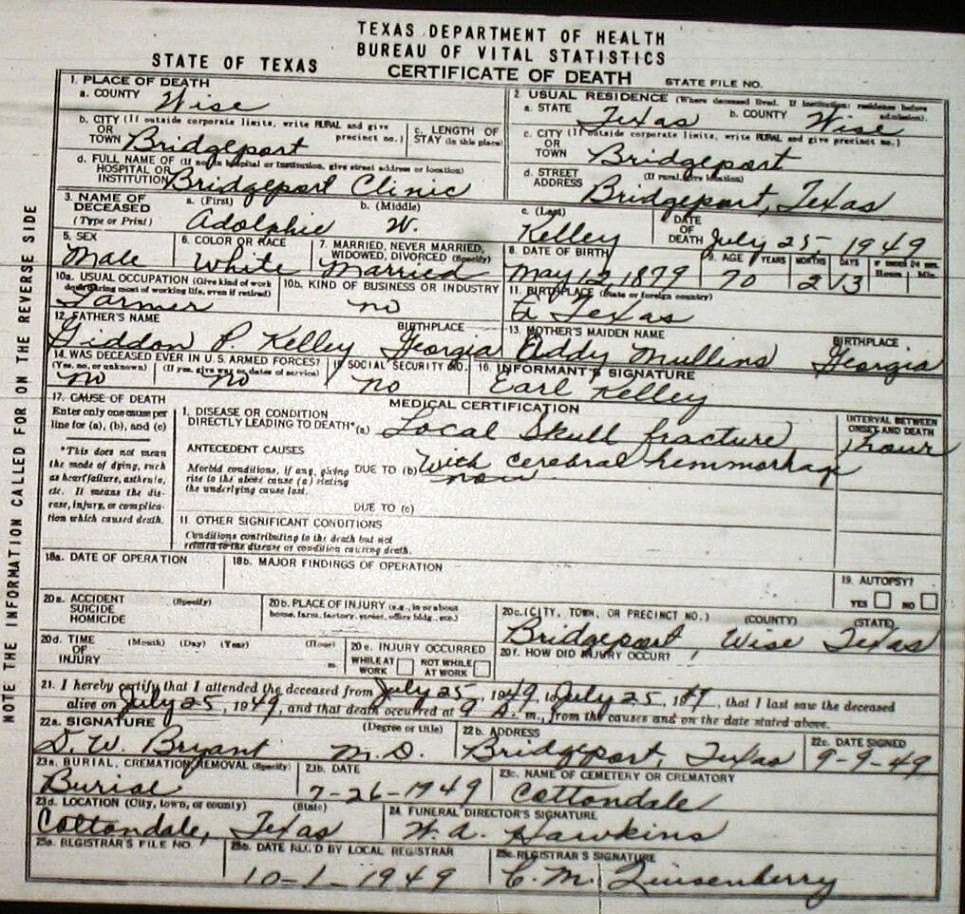 TEXAS DEPARTMENT OF HEALTH
BUREAU OF VITAL STATISTICS
STATE OF TEXAS
CERTIFICATE OF DEATH
STATE FILE NO.
NOTE THE INFORMATION CALLED FOR ON THE REVERSE SIDE
1. PLACE OF DEATH
a. COUNTY Wise
2. USUAL RESIDENCE (Where deceased lived. If institution: residence before admission).
a. STATE Texas b. COUNTY Wise
b. CITY (If outside corporate limits, write RURAL and give precinct no.) OR TOWN Bridgeport
c. LENGTH OF STAY (in this place)
c. CITY (If outside corporate limits, write RURAL and give precinct no.) OR TOWN Bridgeport
d. FULL NAME OF (If not in hospital or institution, give street address or location) HOSPITAL OR INSTITUTION Bridgeport Clinic
d. STREET ADDRESS (If rural, give location) Bridgeport, Texas
3. NAME OF DECEASED (Type or Print) a. (First) Adolphie b. (Middle) W. c. (Last) Kelley
DATE OF DEATH July 25 1949
5. SEX Male
6. COLOR OR RACE White
7. MARRIED, NEVER MARRIED, WIDOWED, DIVORCED (Specify) Married
8. DATE OF BIRTH May 12, 1879
9. AGE YEARS 70 MONTHS 2 DAYS 13 IF UNDER 24 HRS. Hours Min.
10a. USUAL OCCUPATION (Give kind of work done during most of working life, even if retired) Farmer
10b. KIND OF BUSINESS OR INDUSTRY no
11. BIRTHPLACE (State or foreign country) Texas
12. FATHER'S NAME Giddon P. Kelley BIRTHPLACE Georgia
13. MOTHER'S MAIDEN NAME Addy Mullins BIRTHPLACE Georgia
14. WAS DECEASED EVER IN U.S. ARMED FORCES? (Yes, no, or unknown) no (If yes, give war or dates of service) no
15. SOCIAL SECURITY NO. no
16. INFORMANT'S SIGNATURE Earl Kelley
17. CAUSE OF DEATH
Enter only one cause per line for (a), (b), and (c)
*This does not mean the mode of dying, such as heart failure, asthenia, etc. It means the disease, injury, or complication which caused death.
MEDICAL CERTIFICATION
I. DISEASE OR CONDITION DIRECTLY LEADING TO DEATH* (a) Local Skull fracture
INTERVAL BETWEEN ONSET AND DEATH
1 hour
ANTECEDENT CAUSES
Morbid conditions, if any, giving rise to the above cause (a) stating the underlying cause last.
DUE TO (b) With cerebral hemmorhage
DUE TO (c)
II. OTHER SIGNIFICANT CONDITIONS
Conditions contributing to the death but not related to the disease or condition causing death.
18a. DATE OF OPERATION
18b. MAJOR FINDINGS OF OPERATION
19. AUTOPSY?
YES NO
20a. ACCIDENT SUICIDE HOMICIDE (Specify)
20b. PLACE OF INJURY (e.g., in or about home, farm, factory, street, office bldg., etc.)
20c. (CITY, TOWN, OR PRECINCT NO.) (COUNTY) (STATE)
Bridgeport, Wise Texas
20d. TIME OF INJURY (Month) (Day) (Year) (Hour) m
20e. INJURY OCCURRED
WHILE AT WORK NOT WHILE AT WORK
20f. HOW DID INJURY OCCUR?
21. I hereby certify that I attended the deceased from July 25, 1949, to July 25, 1949, that I last saw the deceased
alive on July 25, 1949, and that death occurred at 9 A. m., from the causes and on the date stated above.
22a. SIGNATURE (Degree or title) D. W. Bryant M.D.
22b. ADDRESS Bridgeport, Texas
22c. DATE SIGNED 9-9-49
23a. BURIAL, CREMATION, REMOVAL (Specify) Burial
23b. DATE 7-26-1949
23c. NAME OF CEMETERY OR CREMATORY Cottondale
23d. LOCATION (City, town, or county) (State) Cottondale, Texas
24. FUNERAL DIRECTOR'S SIGNATURE W. A. Hawkins
25a. REGISTRAR'S FILE NO.
25b. DATE REC'D BY LOCAL REGISTRAR 10-1-1949
25c. REGISTRAR'S SIGNATURE C. M. Quisenberry